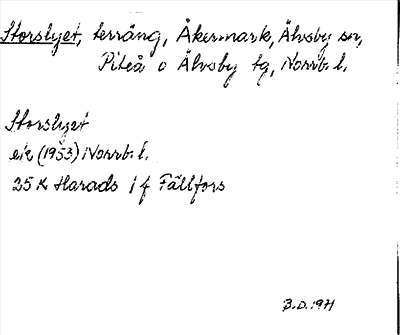 Storslyet, terräng, Åkermark, Älvsby sn,
Piteå o Älvsby tg, Norrb. l.
Storslyet
ek (1953) Norrb. l.
25K Harads j f Fällfors
B.D. 1971